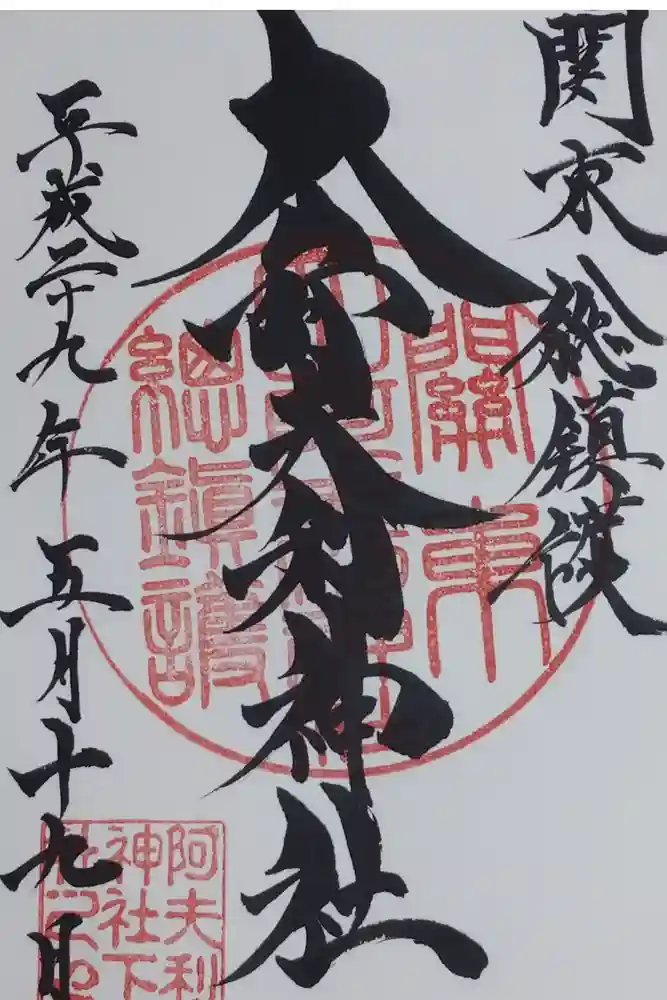 関東総鎮護
大山阿夫利神社
平成二十九年五月十九日
關東
總鎮護
阿夫利
神社下